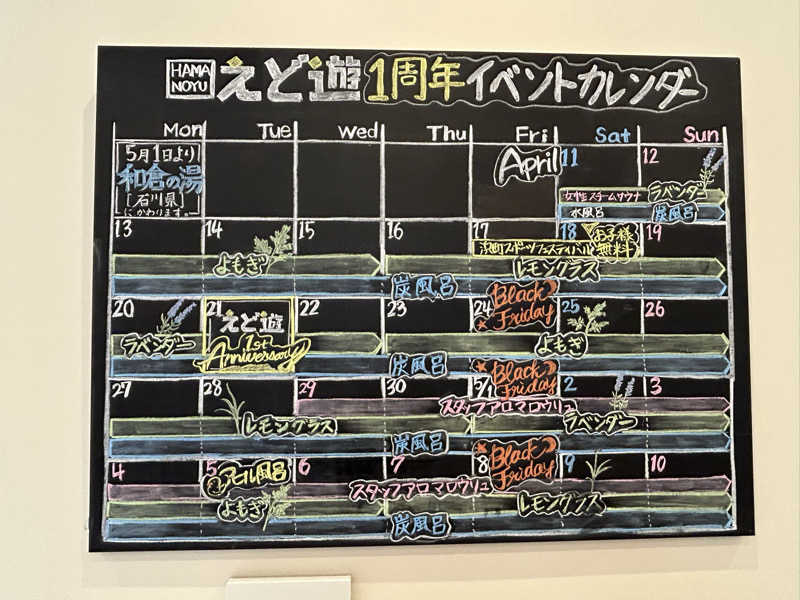 HAMA NOYU えど遊 1周年 イベントカレンダー
Mon Tue Wed Thu Fri Sat Sun
5月1日より
和倉の湯
[石川県]
にかわります。
April 11 12
女性スチームサウナ ラベンダー
水風呂 炭風呂
13 14 15 16 17 18 お子様無料 19
浜町スポーツフェスティバル
よもぎ レモングラス
炭風呂
20 21 22 23 24 Black Friday 25 26
えど遊
1st Anniversary
ラベンダー よもぎ
炭風呂
27 28 29 30 5/1 Black Friday 2 3
スタッフアロマロウリュ
レモングラス ラベンダー
炭風呂
4 5 6 7 8 Black Friday 9 10
風呂
スタッフアロマロウリュ
よもぎ レモングラス
炭風呂